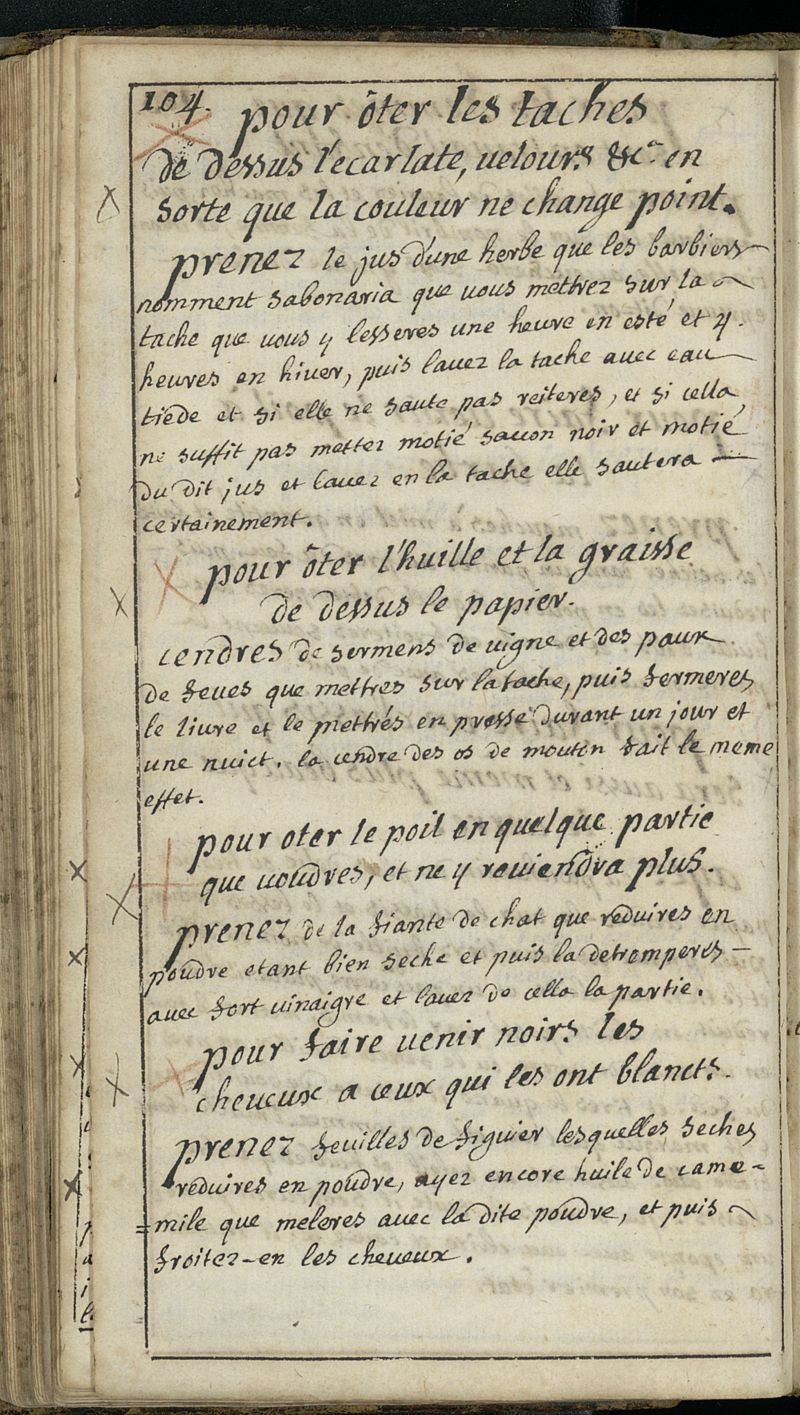 104.
pour ôter les taches
de dessus l'ecarlate, velours &c.a en
sorte que la couleur ne change point.
prenez le jus d'une herbe que les barbiers
nomment sabonaria que vous mettrez sur la
tache que vous y lesseres une heure en esté et 4.
heures en hiver, puis lavez la tache avec eau
tiede et si elle ne saute pas reiteres, et si cella
ne suffit pas mettez motié savon noir et motié
du dit jus et lavez en la tache elle sautera
certainement.
pour ôter l'huille et la graisse
de dessus le papier.
cendres de sermens de vigne et des paux
de feves que mettres sur la tache, puis fermeres
le livre et le mettrés en presse durant un jour et
une nuict. la cendre des os de mouton fait le meme
effet.
pour oter le poil en quelque partie
que voudres, et ne y reviendra plus.
prenez de la fiante de chat que reduires en
poudre etant bien seche et puis la detremperes
avec fort vinaigre et lavez de cella la partie.
pour faire venir noirs les
cheveux a ceux qui les ont blancts.
prenez feuilles de figuier lesquelles seches
reduires en poudre, ayez encore huile de came-
=mile que meleres avec la dite poudre, et puis
froitez-en les cheveux.